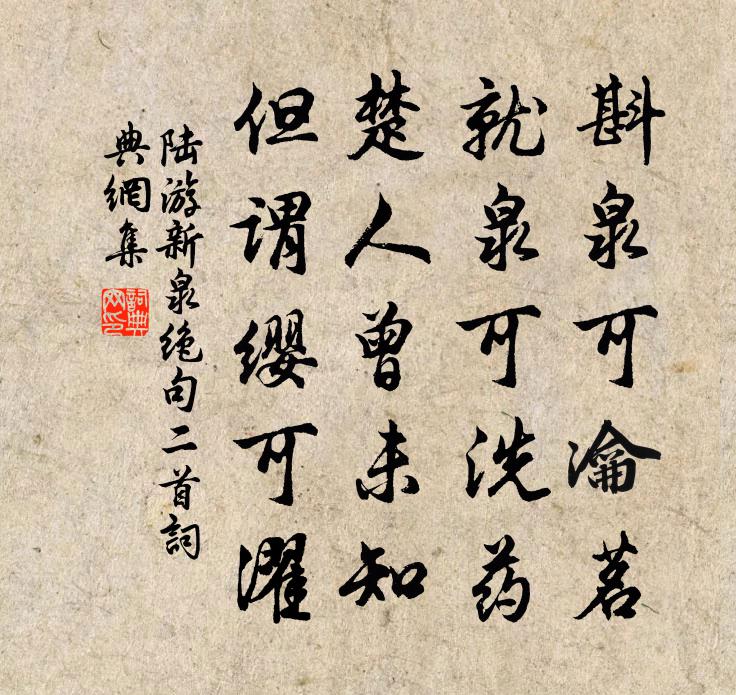 斟泉可瀹茗
就泉可洗药
楚人曾未知
但谓缨可濯
陆游新泉绝句二首詞
典網集
詞典
网印